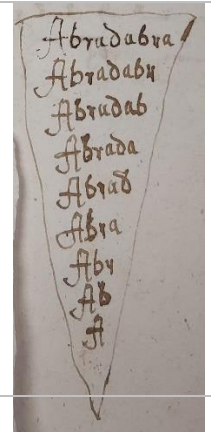 Abradabra
Abradabr
Abradab
Abrada
Abrad
Abra
Abr
Ab
A